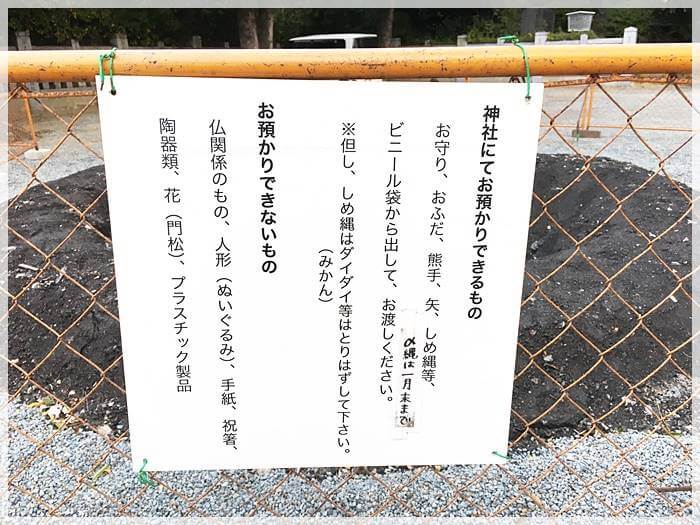 神社にてお預かりできるもの
お守り、おふだ、熊手、矢、しめ縄等、
ビニール袋から出して、お渡しください。
〆縄は一月末まで
※但し、しめ縄はダイダイ等はとりはずして下さい。
(みかん)
お預かりできないもの
仏関係のもの、人形(ぬいぐるみ)、手紙、祝箸、
陶器類、花(門松)、プラスチック製品